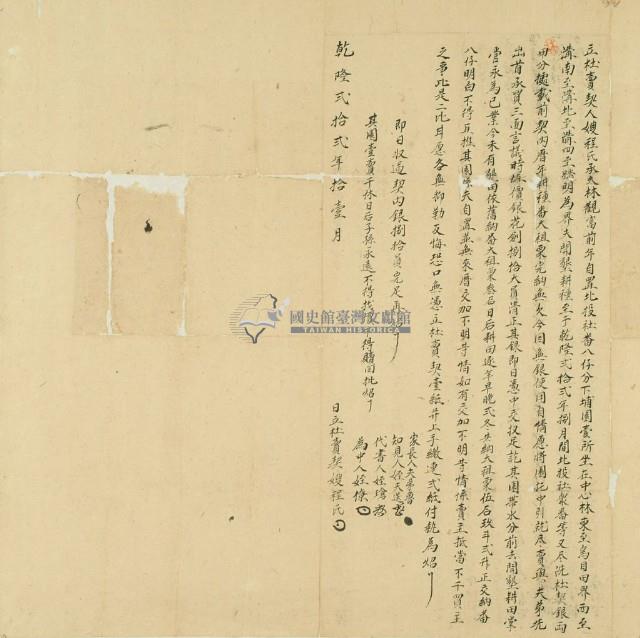 立杜賣契人嫂程氏承夫林觀富前年自置北投社番八仔分下埔園壹所坐在中心林東至烏目田界西至
溝南至溝北至溝四至踏明為界夫開墾耕種至于乾隆弍拾弍年捌月間北投社眾番等又尽洗杜契銀兩
四分 載前契內曆年耕種番大租粟完納無欠今因無銀使用自情愿將園託中引就尽賣與夫弟先
出首承買三面言議時值價銀花劍捌拾大員清正其銀即日憑中交收足訖其園帶水分前去開墾耕田掌
管永為己業今未有墾田依舊納番大租粟叁石日后耕田逐年早晚弍冬共納大租粟伍石玖斗弍升正交納番
八仔明白不得反推其園係夫自置並無來曆交加不明等情如有交加不明等情係賣主抵當不干買主
之事此是二比甘愿各無抑勒反悔恐口無憑立杜賣契壹紙并上手繳連弍紙付執為炤
即日收過契內銀捌拾員完足再炤
其園壹賣千休日后子孫永遠不得找 得贖回批炤
國史館臺灣文獻館
TAIWAN HISTORICA
家長人夫弟
知見人姪天送
代書人姪
為中人姪
乾隆弍拾弍年拾壹月
日立杜賣契嫂程氏